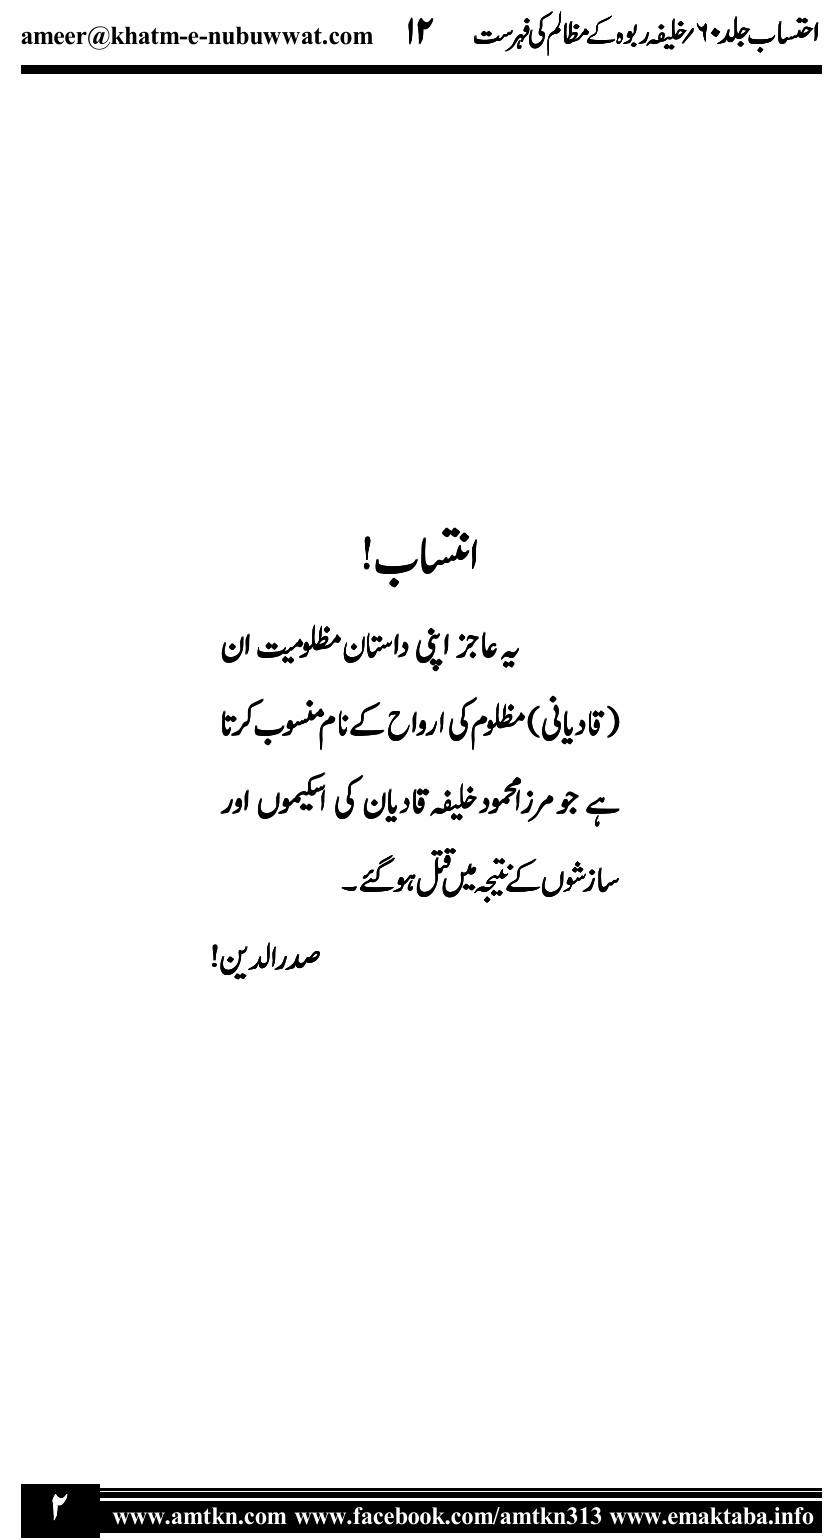 احتساب جلد ۶۰؍خلیفہ ربوہ کے مظالم کی فہرست ۱۲ ameer@khatm-e-nubuwwat.com
انتساب!
یہ عاجز اپنی داستان مظلومیت ان
(قادیانی) مظلوم کی ارواح کے نام منسوب کرتا
ہے جو مرزامحمود خلیفہ قادیان کی اسکیموں اور
سازشوں کے نتیجہ میں قتل ہو گئے۔
صدرالدین!
۲ www.amtkn.com www.facebook.com/amtkn313 www.emaktaba.info